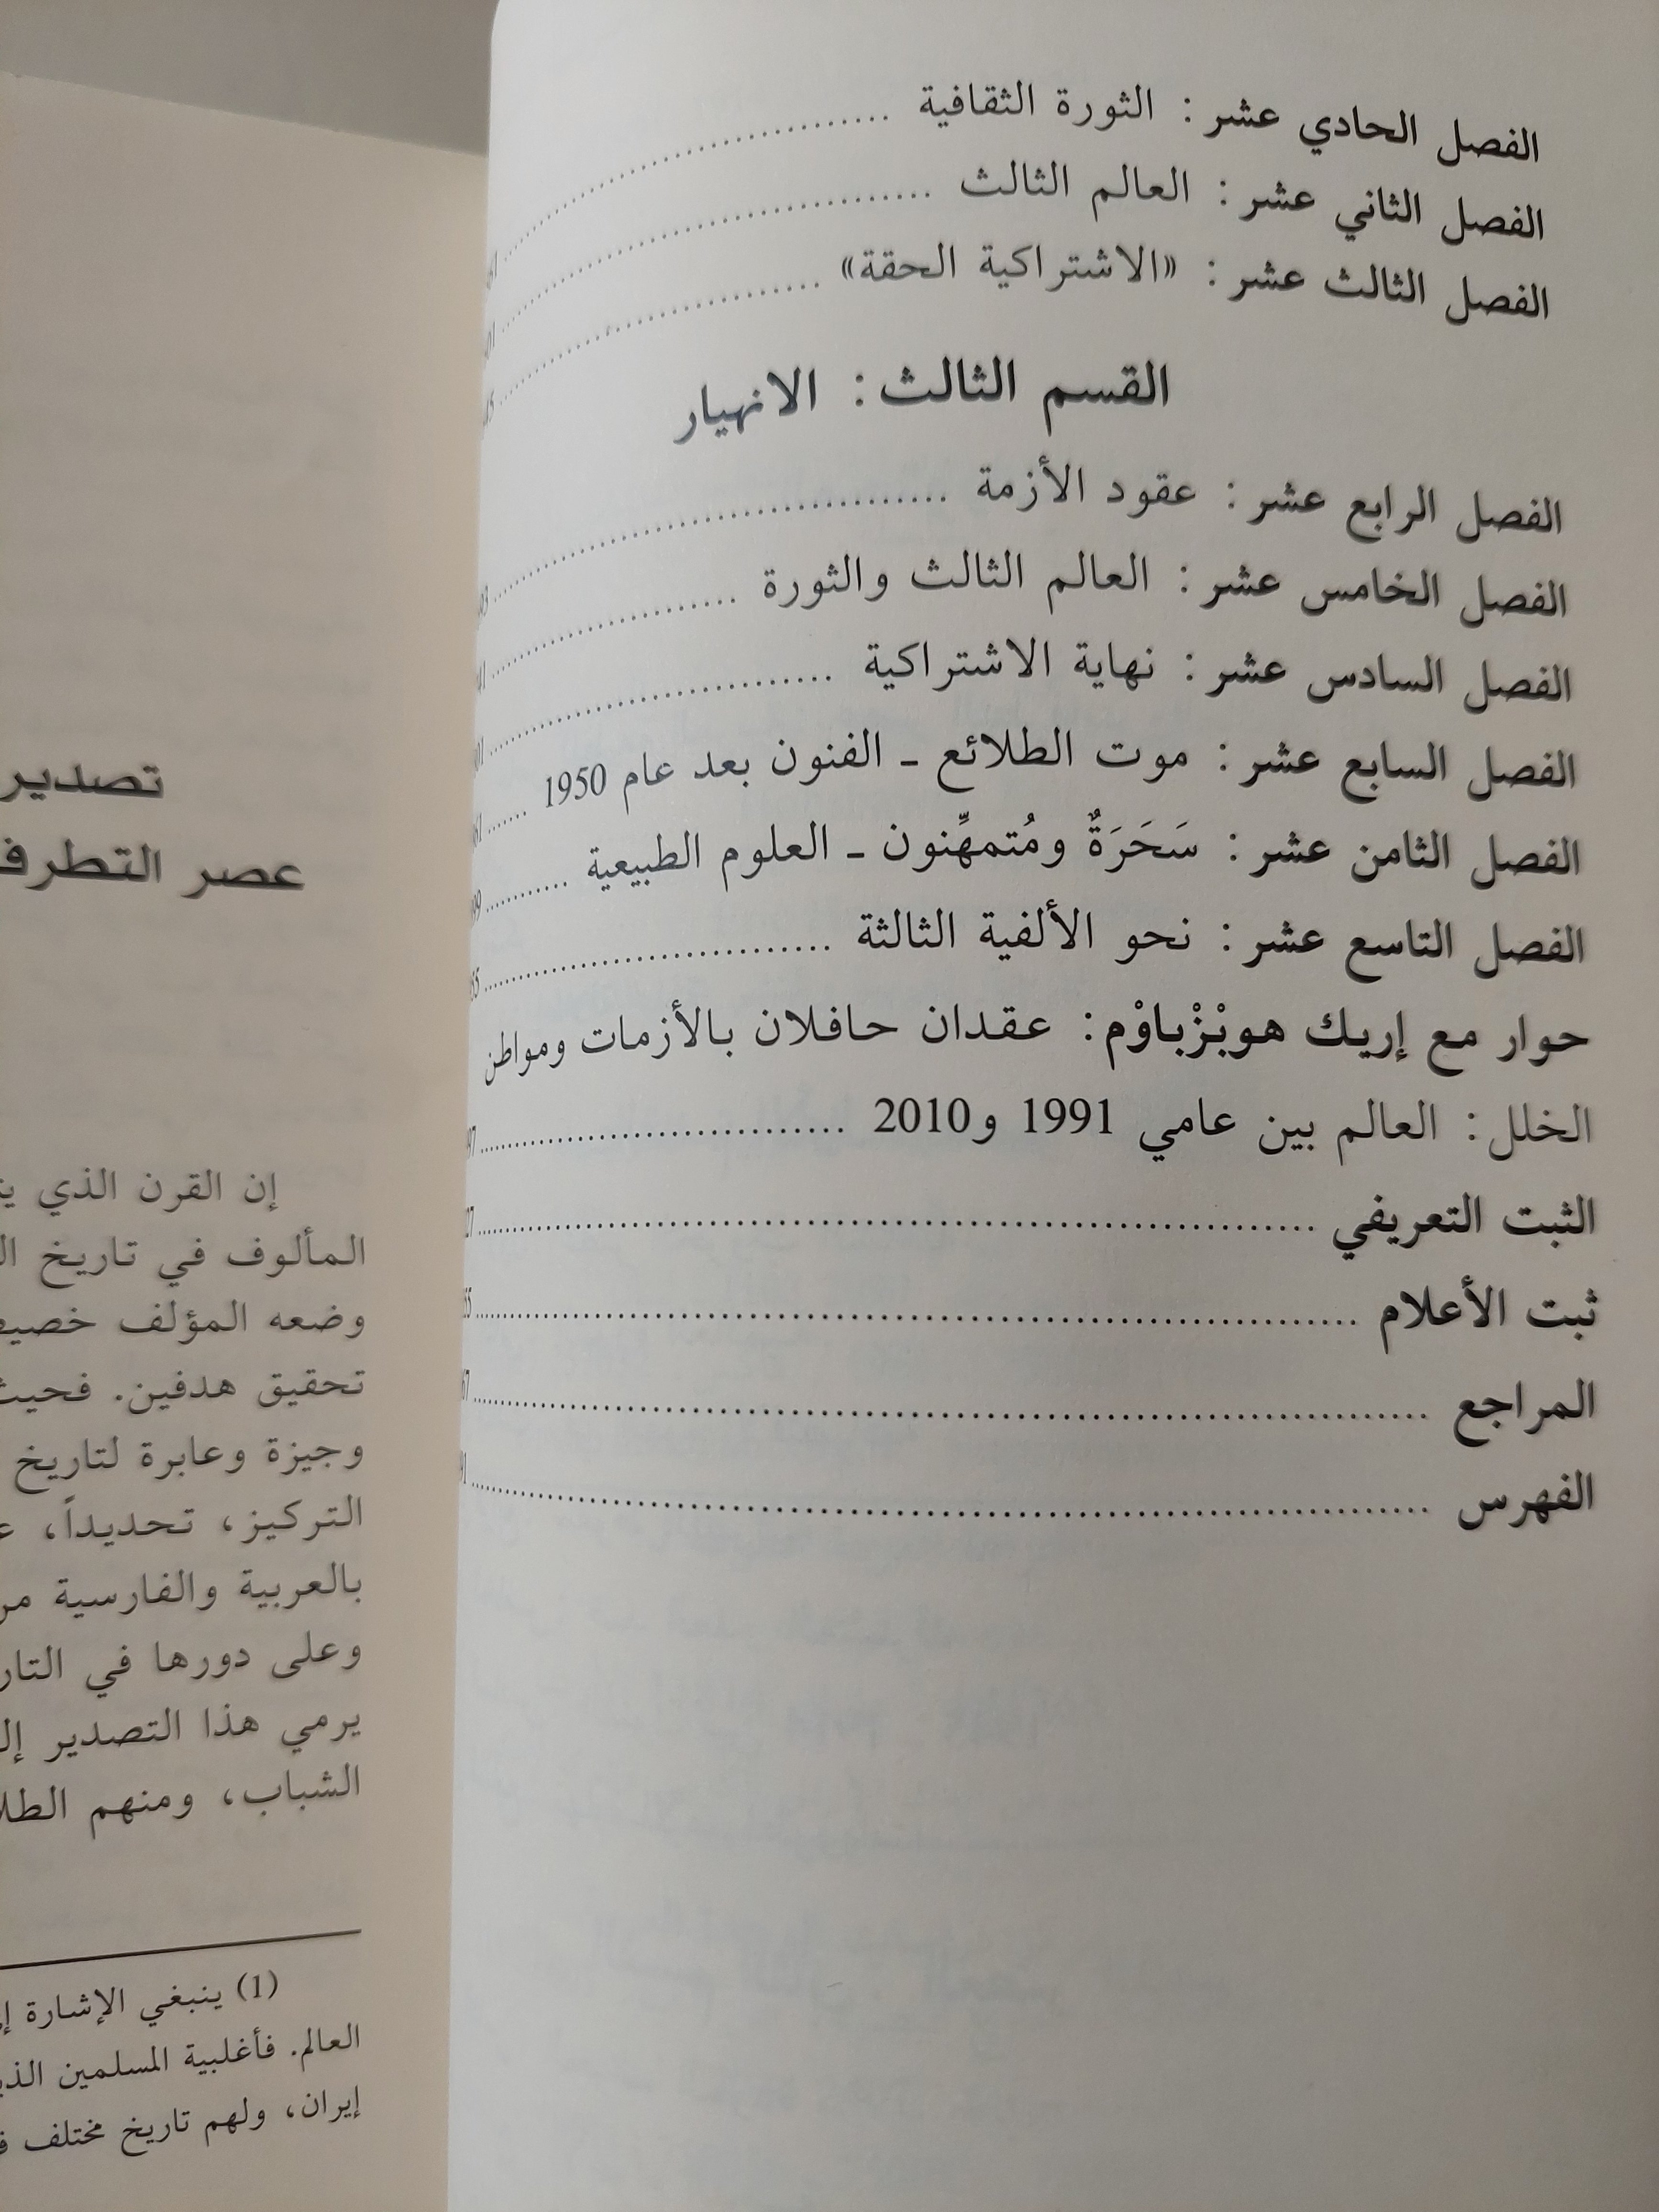 الفصل الحادي عشر : الثورة الثقافية
الفصل الثاني عشر : العالم الثالث
الفصل الثالث عشر : «الاشتراكية الحقة»
القسم الثالث : الانهيار
الفصل الرابع عشر : عقود الأزمة
الفصل الخامس عشر : العالم الثالث والثورة
الفصل السادس عشر : نهاية الاشتراكية
الفصل السابع عشر : موت الطلائع ـ الفنون بعد عام 1950
الفصل الثامن عشر : سَحَرَةٌ ومُتمهِّنون ـ العلوم الطبيعية
الفصل التاسع عشر : نحو الألفية الثالثة
حوار مع إريك هوبْزْباوْم: عقدان حافلان بالأزمات ومواطن
الخلل: العالم بين عامي 1991 و2010
الثبت التعريفي
ثبت الأعلام
المراجع
الفهرس
تصدير
عصر التطرف
إن القرن الذي
المألوف في تاريخ
وضعه المؤلف
تحقيق هدفين. فحيث
وجيزة وعابرة لتاريخ
التركيز، تحديداً،
بالعربية والفارسية
وعلى دورها في
يرمي هذا التصدير
الشباب، ومنهم
(1) ينبغي الإشارة
العالم. فأغلبية المسلمين
إيران، ولهم تاريخ مختلف